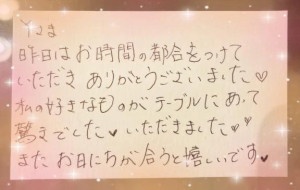 昨日はお時間の都合をつけて
いただき ありがとうございました♥
私の好きなものが テーブルにあって
驚きでした♥ いただきました♥
また お日にちが合うと嬉しいです♥